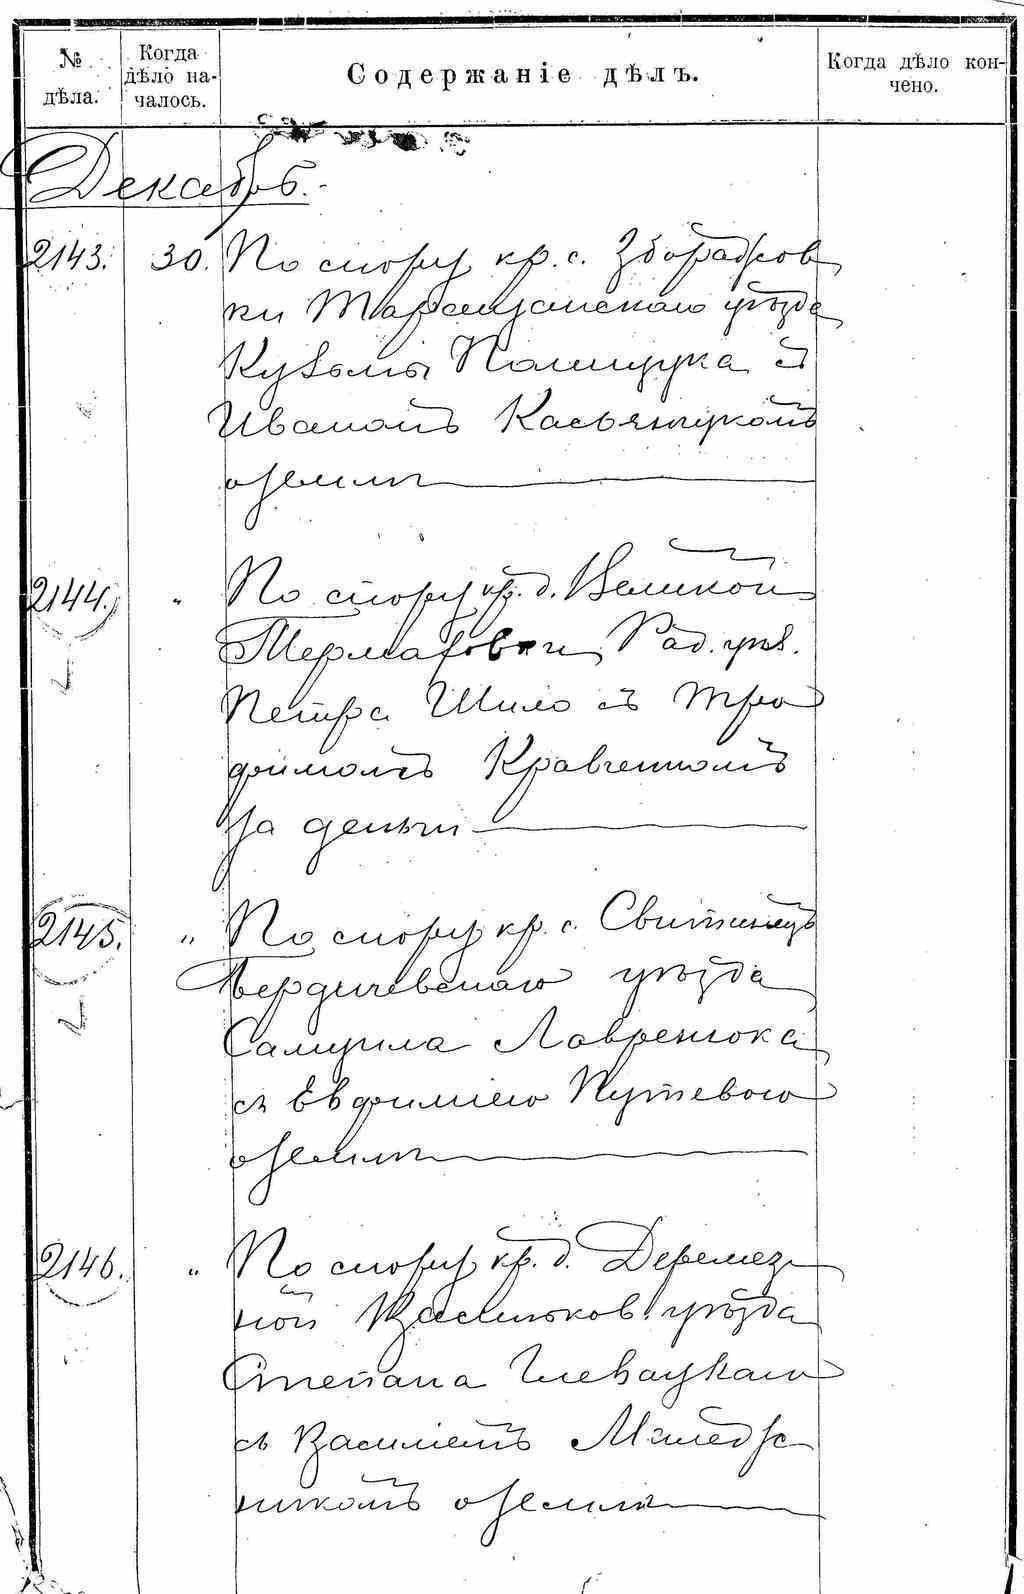 № дѣла.
Когда дѣло началось.
Содержаніе дѣлъ.
Когда дѣло кончено.
Декабрь.
2143. 30. По спору кр. с. Збораджов
ки Таращанскаго уѣзда
Кузьмы Полищука съ
Иваномъ Касьянчукомъ
о землѣ
2144. " По спору кр. д. Великой
Рад. уѣз.
Петра Шило съ Тро
фимомъ Кравченкомъ
за деньги
2145. " По спору кр. с. Свитинецъ
Бердичевскаго уѣзда
Самуила Лавренюка
съ Евфиміею Путевою
о землѣ
2146. " По спору кр. д. Деремез
ной Васильков. уѣзда
Степана Глевацкаго
съ Василіемъ
никомъ о землѣ